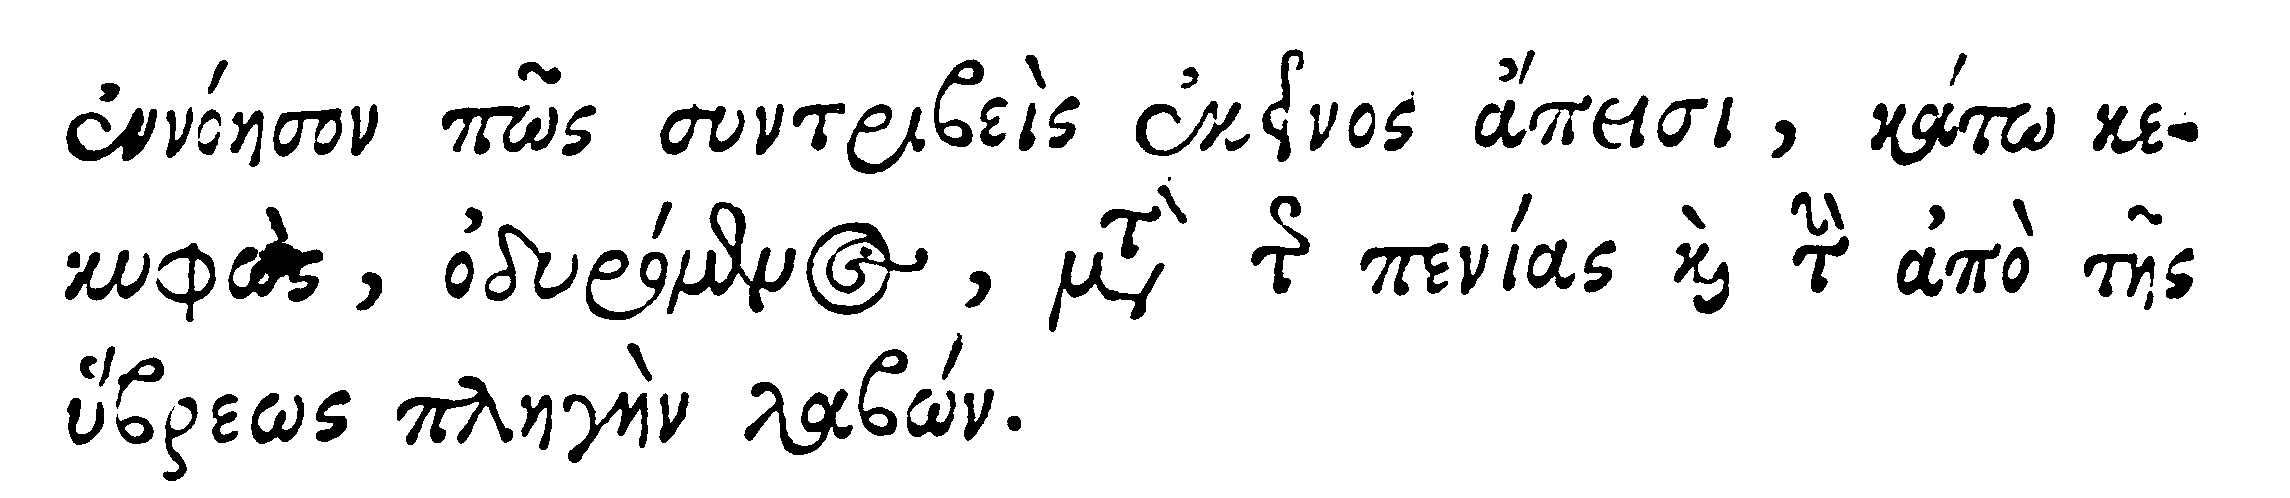 ἐννόησον πῶς συντριβεὶς ἐκεῖνος ἄπεισι, κάτω κε-
κυφὼς, ὀδυρόμενος, μετὰ τῆς πενίας καὶ τὴν ἀπὸ τῆς
ὕβρεως πληγὴν λαβών.